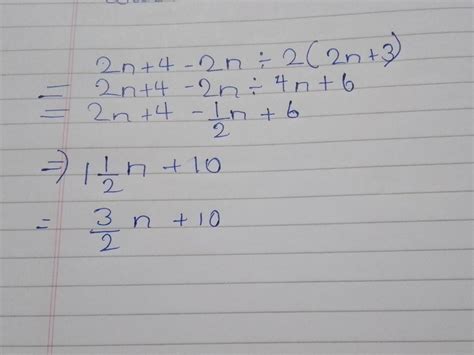 2n+4 -2n ÷ 2(2n+3)
= 2n+4 -2n ÷ 4n+6
= 2n+4 - 1/2 n + 6
⇒ 1 1/2 n + 10
= 3/2 n + 10